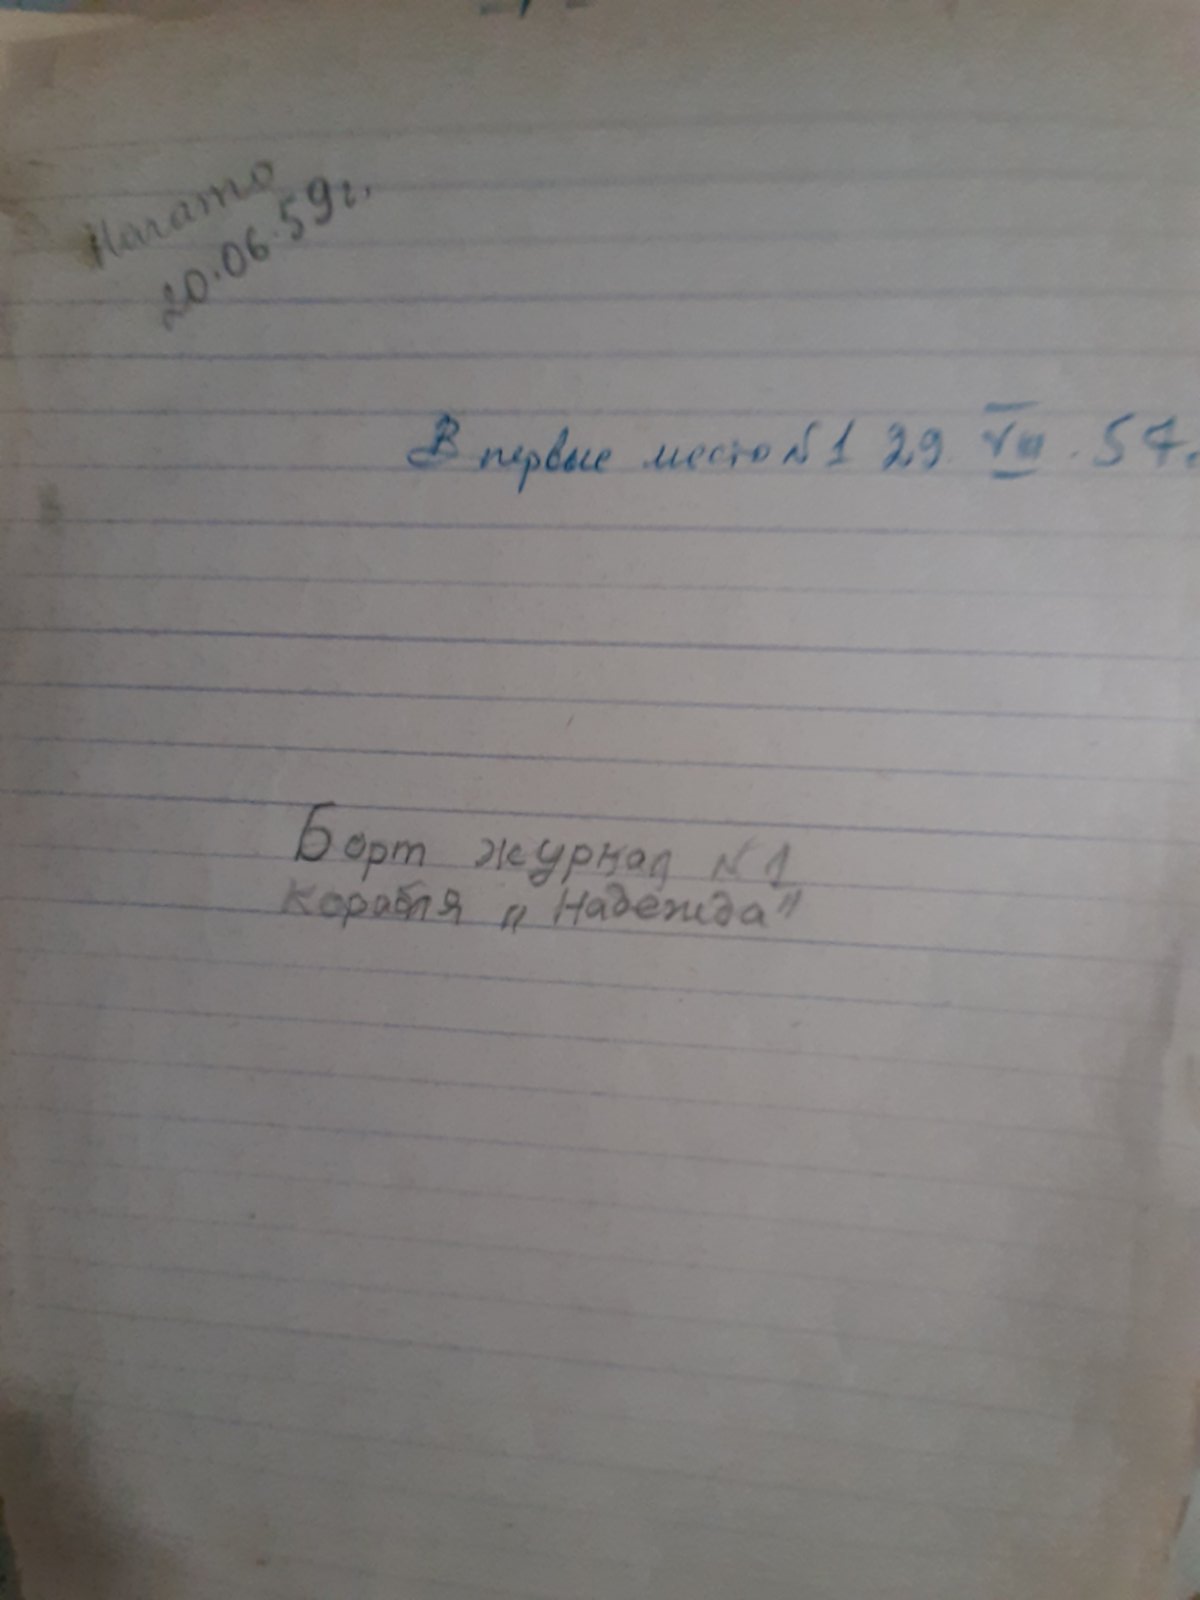 Начато
20.06.59г.
В первые место №1 29 VII. 57.
Борт журнал №1
Корабля „Надежда"